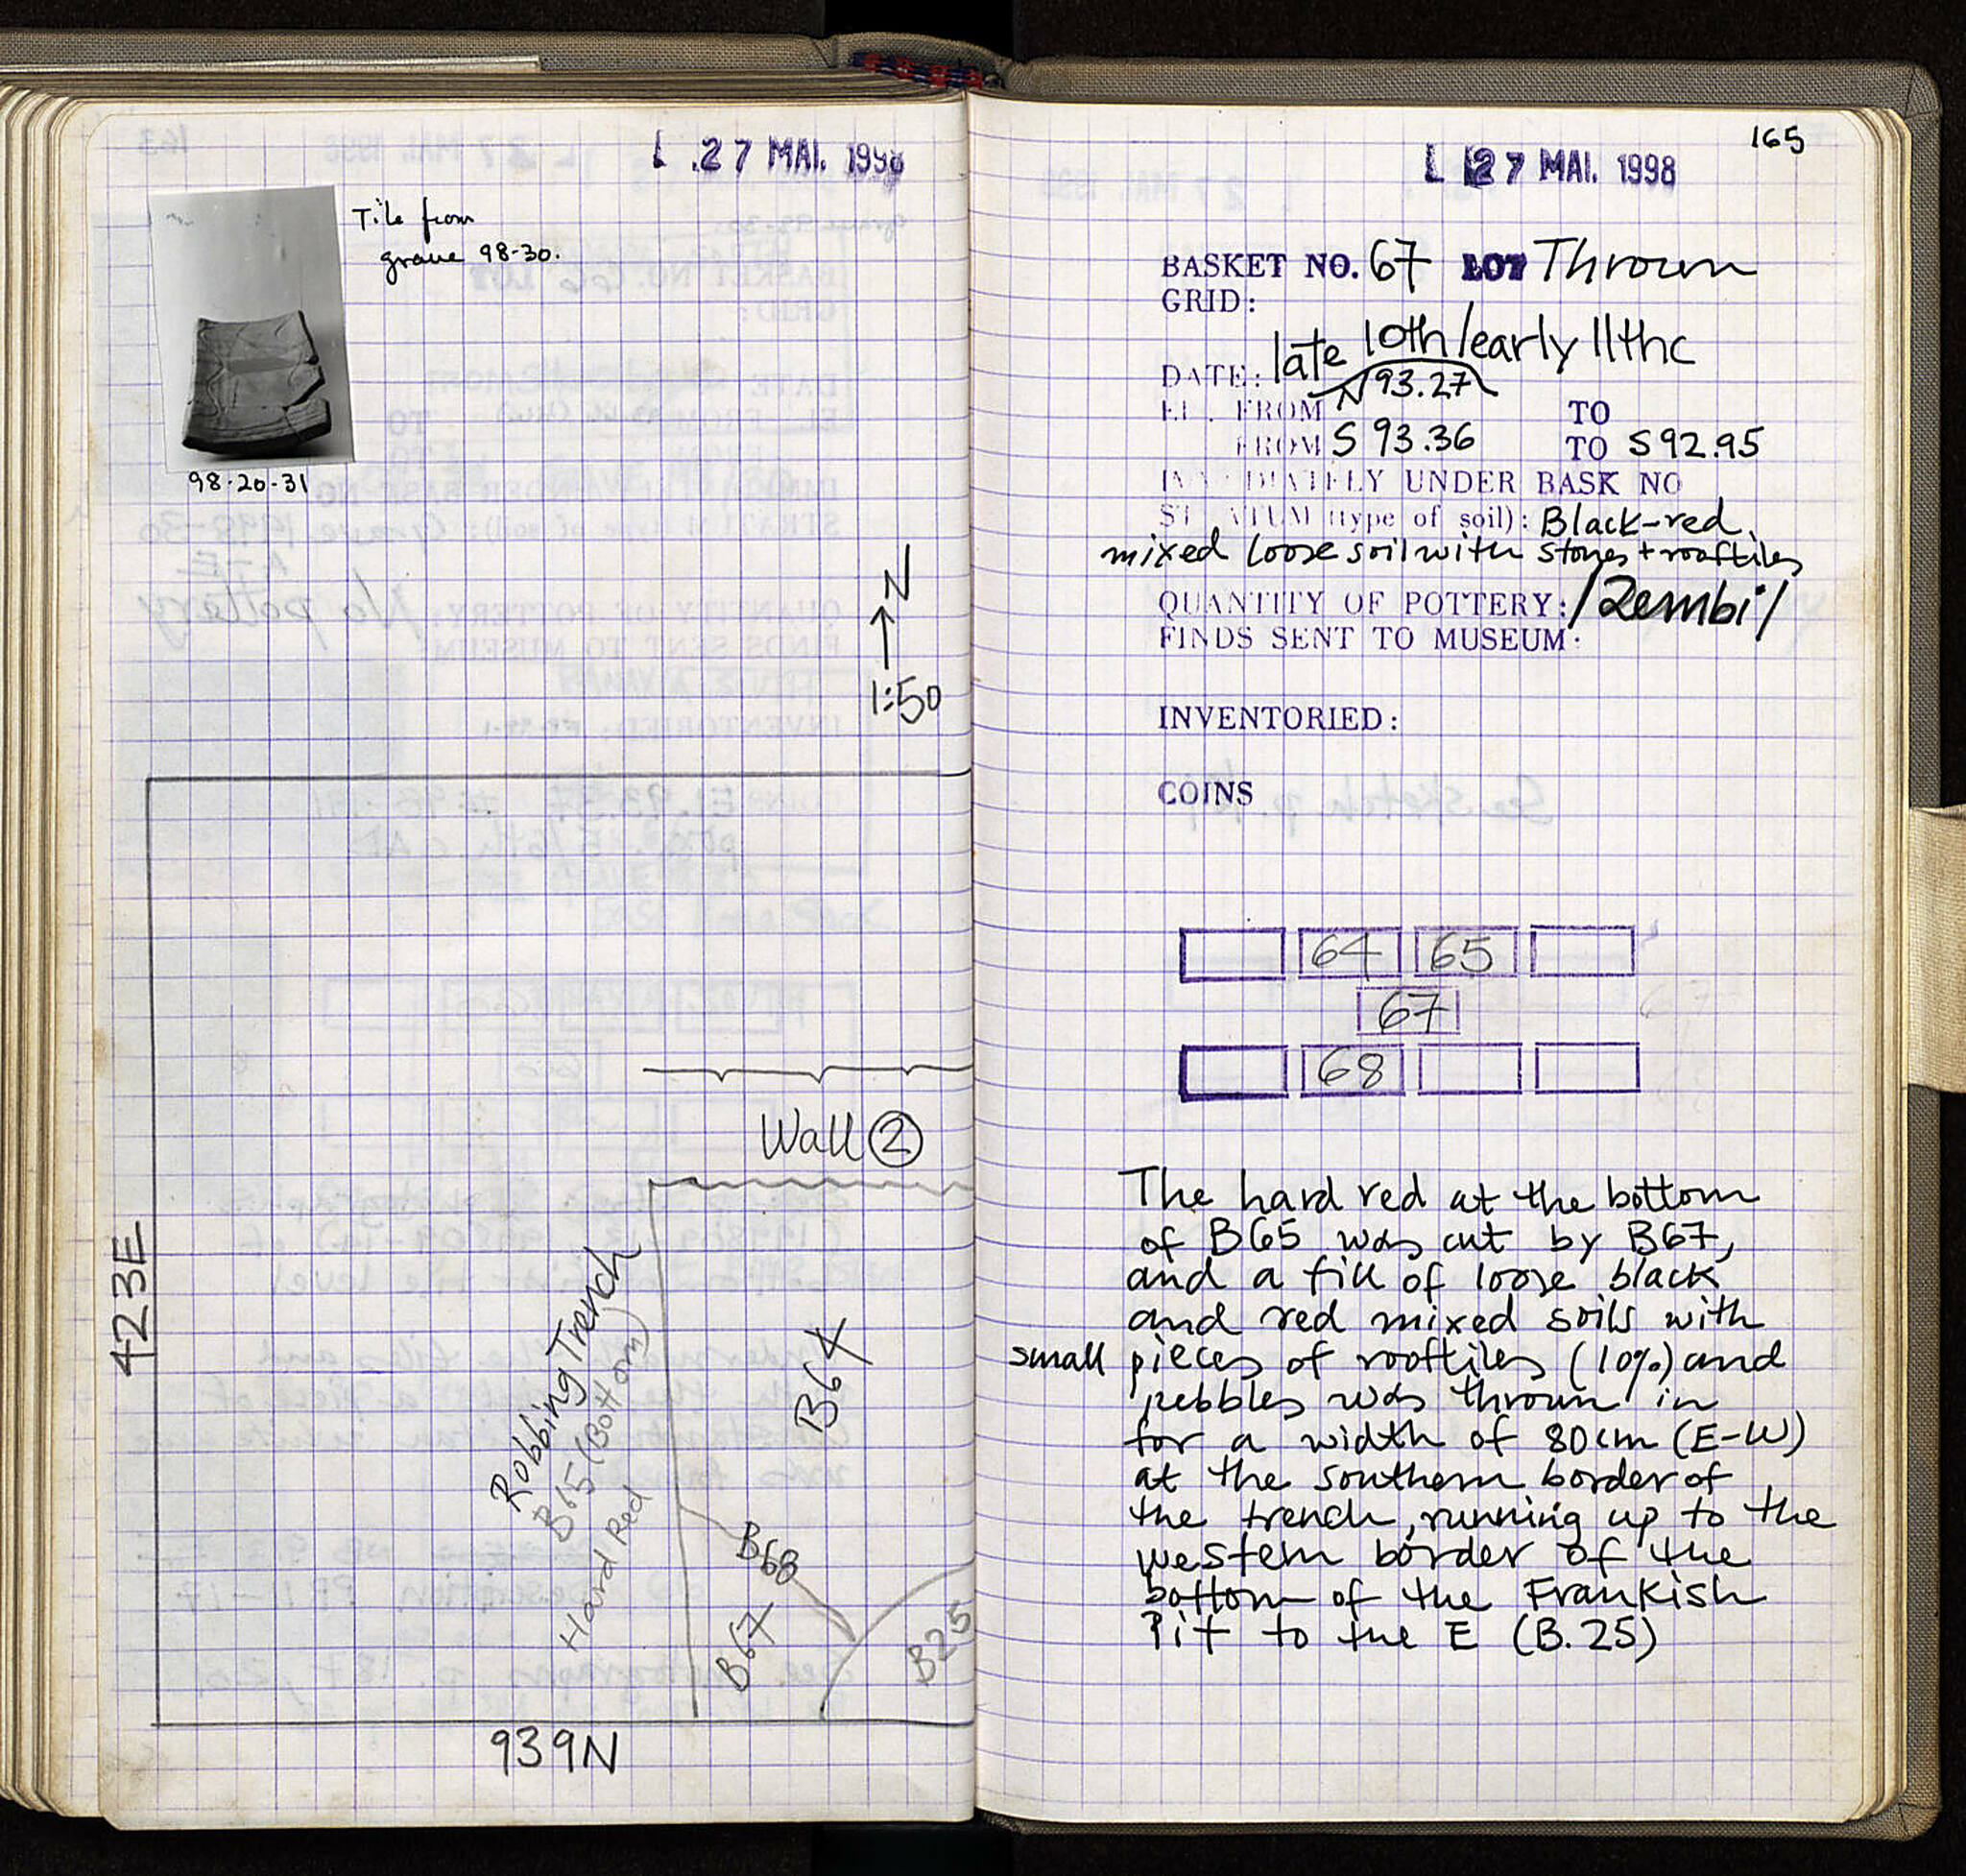 L .27 MAI. 1998
Tile from
grave 98-30.
98-20-31
N
1:50
Wall 2
423E
Robbing Trench
B65 (Bottom)
Hard Red
B64
B68
B67
B25
939N
165
L 27 MAI. 1998
BASKET NO. 67 LOT Thrown
GRID:
DATE: late 10th/early 11thc
N 93.27
EL. FROM TO
FROM S 93.36 TO S 92.95
IMMEDIATELY UNDER BASK NO
STRATUM (type of soil): Black-red
mixed loose soil with stones + rooftiles
QUANTITY OF POTTERY: 1 Zembil
FINDS SENT TO MUSEUM:
INVENTORIED:
COINS
64 65
67
68
The hard red at the bottom
of B65 was cut by B67,
and a fill of loose black
and red mixed soils with
small pieces of rooftiles (10%) and
pebbles was thrown in
for a width of 80cm (E-W)
at the southern border of
the trench, running up to the
western border of the
bottom of the Frankish
Pit to the E (B.25)